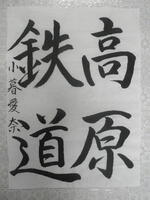 高原
鉄道
小暮愛奈